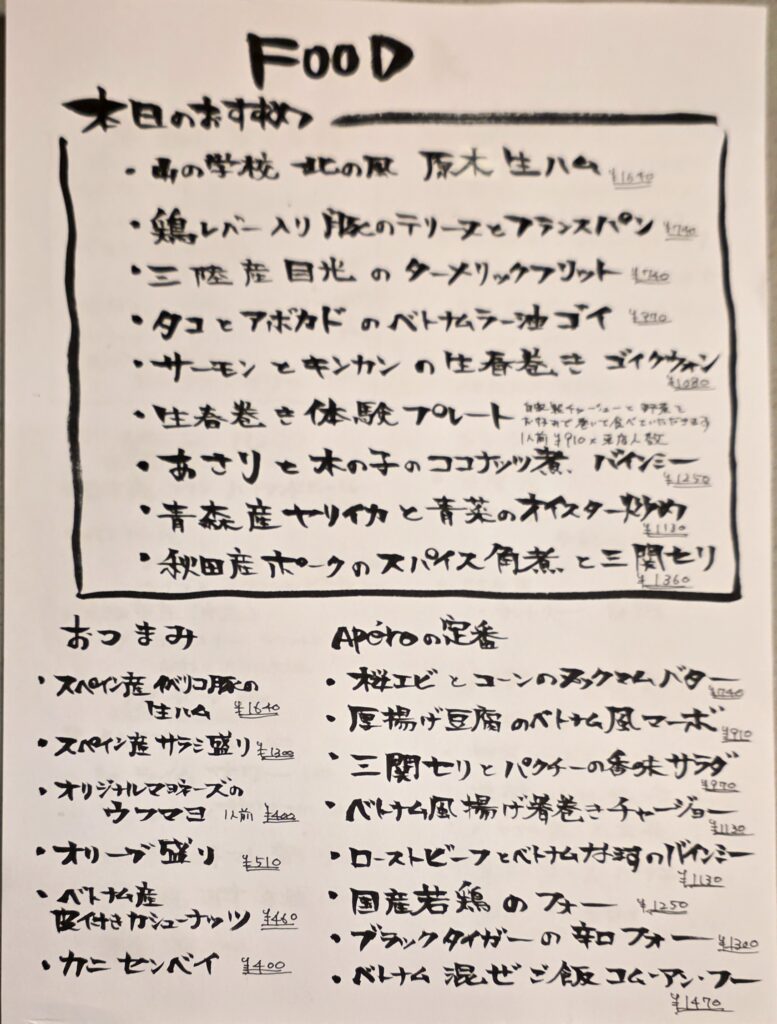 FOOD
本日のおすすめ
・山の学校 北の風 原木 生ハム ¥1640
・鶏レバー入り 豚のテリーヌとフランスパン ¥740
・三陸産 目光 の ターメリックフリット ¥740
・タコ と アボカド の ベトナムラー油 ゴイ ¥970
・サーモン と キンカン の 生春巻き ゴイクウォン ¥1080
・生春巻き 体験 プレート 自家製チャーシューと 野菜を
お好みで巻いて食べていただきます
1人前 ¥910 × 来店人数
・あさり と 木の子 の ココナッツ煮、バインミー ¥1250
・青森産 ヤリイカ と 青菜の オイスター炒め ¥1130
・秋田産 ポークの スパイス 角煮 と 三関セリ ¥1360
おつまみ
・スペイン産 イベリコ豚の
生ハム ¥1640
・スペイン産 サラミ盛り ¥1300
・オリジナルマヨネーズの
ウフマヨ 1人前 ¥400
・オリーブ 盛り ¥510
・ベトナム産
皮付きカシューナッツ ¥460
・カニ センベイ ¥400
Apéroの定番
・桜エビ と コーン の ヌックマム バター ¥740
・厚揚げ豆腐 の ベトナム風 マーボ ¥910
・三関セリ と パクチーの 香味 サラダ ¥970
・ベトナム風 揚げ春巻き チャージョー ¥1130
・ローストビーフ と ベトナムなますの バインミー ¥1130
・国産若鶏 の フォー ¥1250
・ブラックタイガー の 辛口 フォー ¥1300
・ベトナム 混ぜご飯 コム・アン・フー ¥1470